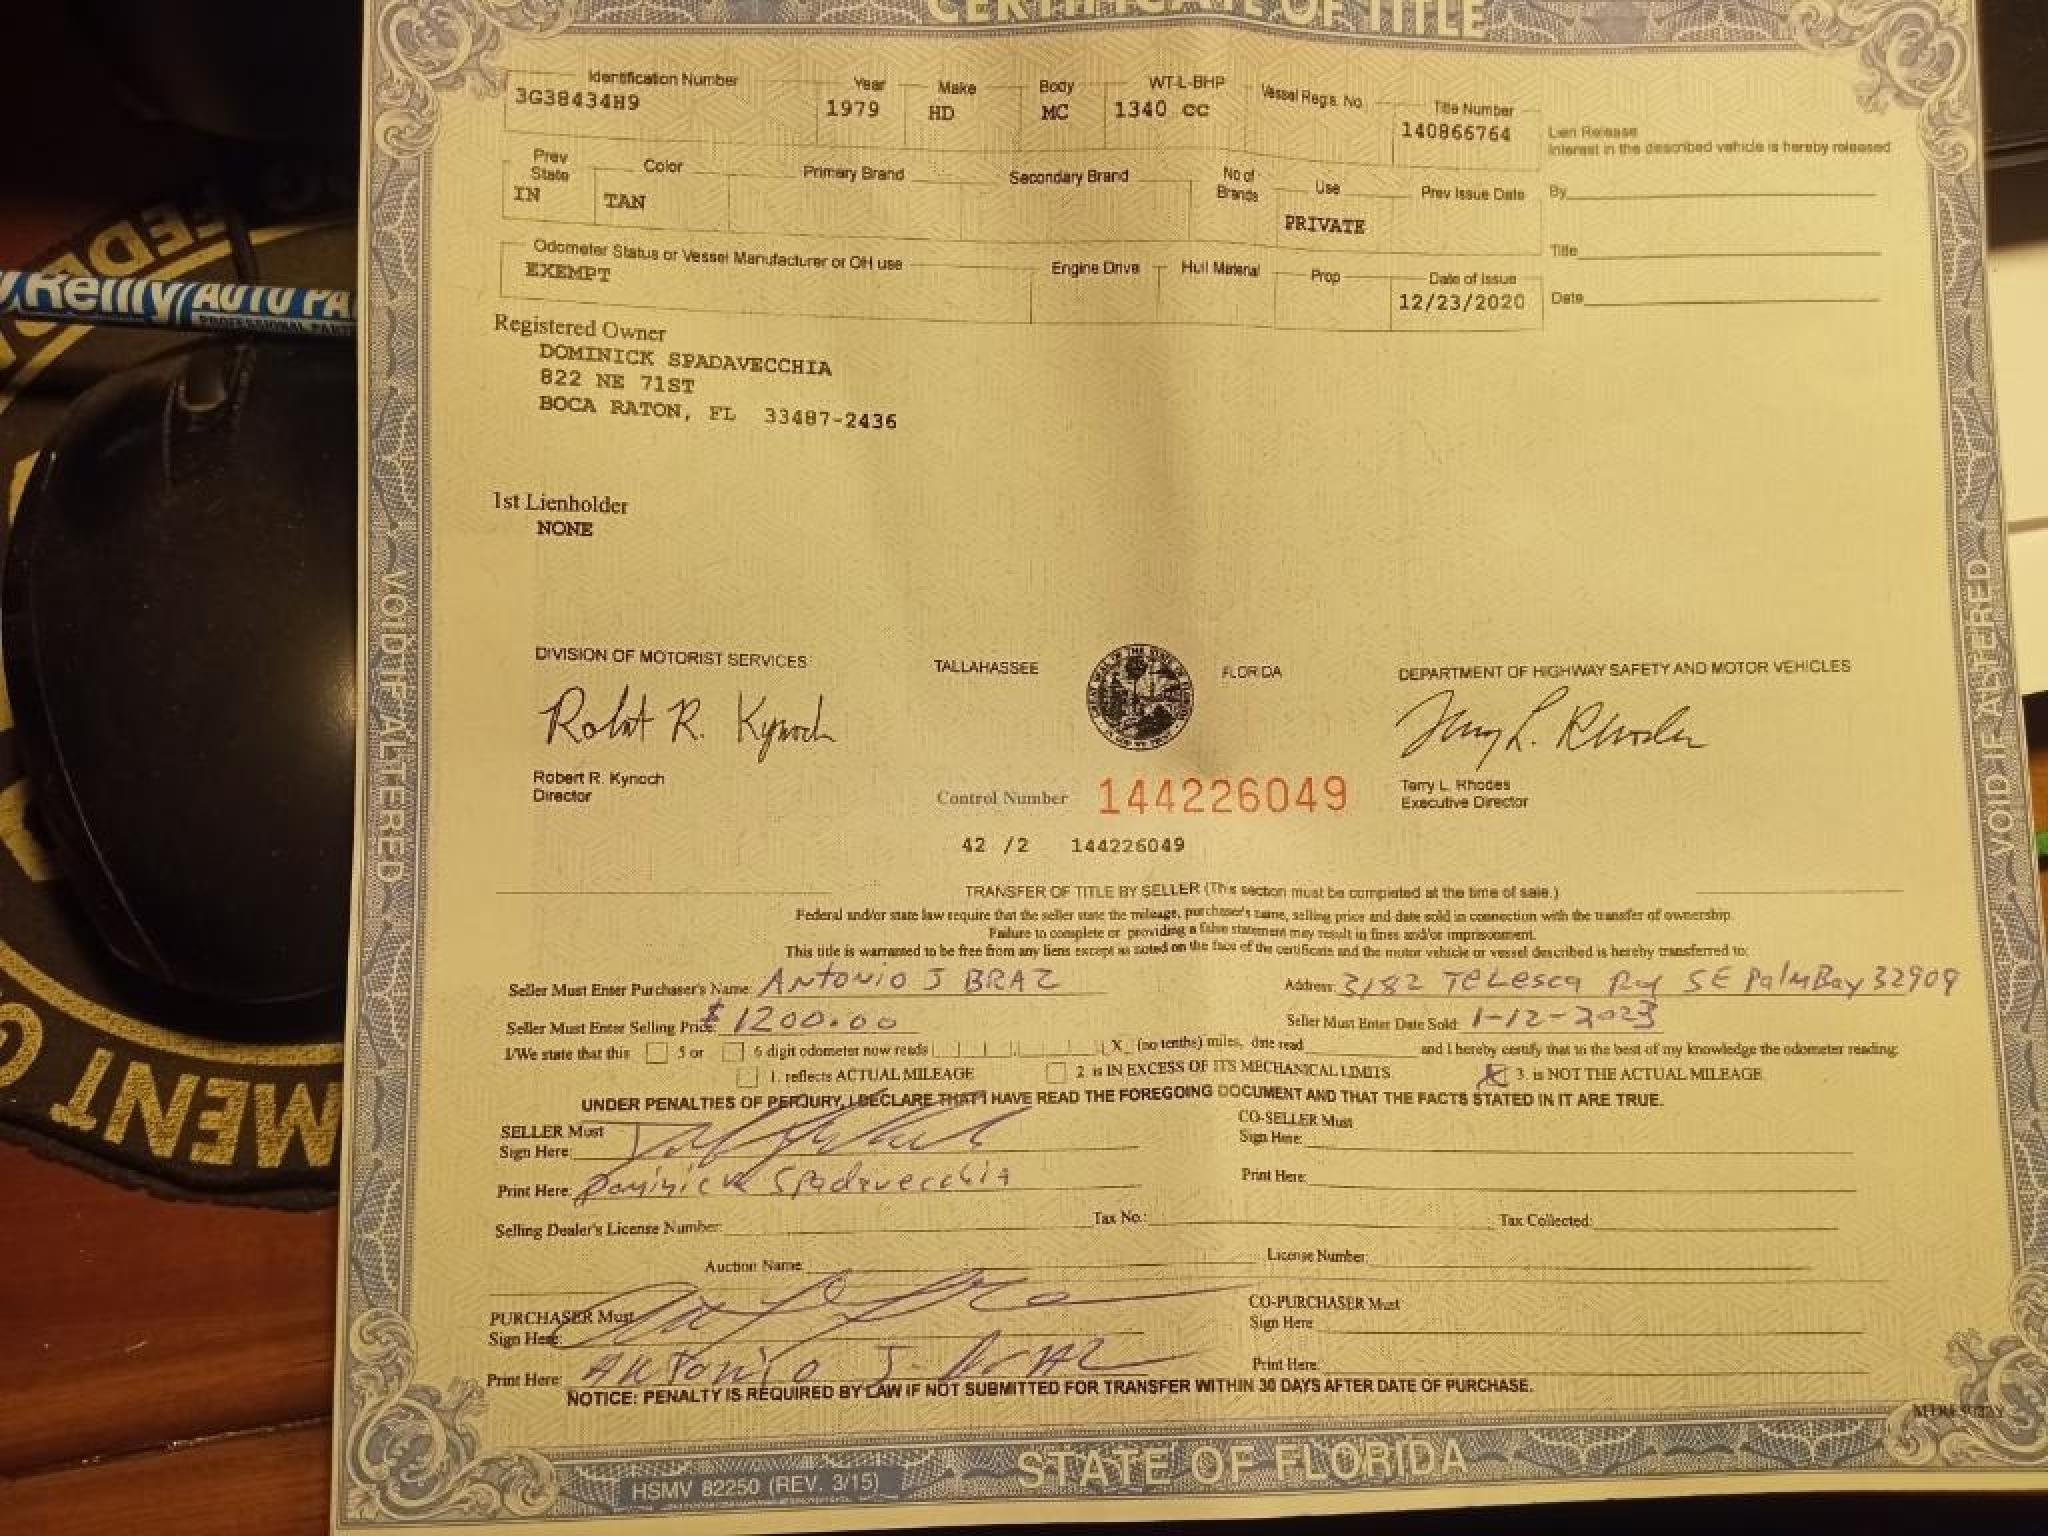 CERTIFICATE OF TITLE
Identification Number Year Make Body WT-L-BHP Vessel Regis. No Title Number
3G38434H9 1979 HD MC 1340 cc 140866764
Lien Release
Interest in the described vehicle is hereby released
Prev State Color Primary Brand Secondary Brand No of Brands Use Prev Issue Date
IN TAN PRIVATE
By
Title
Date
Odometer Status or Vessel Manufacturer or OH use Engine Drive Hull Material Prop Date of Issue
EXEMPT 12/23/2020
O'Reilly AUTO PA
PROFESSIONAL PARTS
Registered Owner
DOMINICK SPADAVECCHIA
822 NE 71ST
BOCA RATON, FL 33487-2436
1st Lienholder
NONE
DIVISION OF MOTORIST SERVICES TALLAHASSEE FLORIDA DEPARTMENT OF HIGHWAY SAFETY AND MOTOR VEHICLES
Robert R. Kynoch
Terry L. Rhodes
Robert R. Kynoch
Director
Control Number 144226049
Terry L. Rhodes
Executive Director
42 /2 144226049
TRANSFER OF TITLE BY SELLER (This section must be completed at the time of sale.)
Federal and/or state law require that the seller state the mileage, purchaser's name, selling price and date sold in connection with the transfer of ownership.
Failure to complete or providing a false statement may result in fines and/or imprisonment.
This title is warranted to be free from any liens except as noted on the face of the certificate and the motor vehicle or vessel described is hereby transferred to:
Seller Must Enter Purchaser's Name: ANTONIO J BRAZ Address: 3182 TELESCA Rd SE PalmBay 32909
Seller Must Enter Selling Price: $1200.00 Seller Must Enter Date Sold: 1-12-2023
I/We state that this 5 or 6 digit odometer now reads X (no tenths) miles, date read and I hereby certify that to the best of my knowledge the odometer reading:
1. reflects ACTUAL MILEAGE 2. is IN EXCESS OF ITS MECHANICAL LIMITS X 3. is NOT THE ACTUAL MILEAGE.
UNDER PENALTIES OF PERJURY, I DECLARE THAT I HAVE READ THE FOREGOING DOCUMENT AND THAT THE FACTS STATED IN IT ARE TRUE.
SELLER Must
Sign Here:
CO-SELLER Must
Sign Here:
Print Here: Dominick Spadavecchia Print Here:
Selling Dealer's License Number: Tax No.: Tax Collected:
Auction Name License Number:
PURCHASER Must
Sign Here:
CO-PURCHASER Must
Sign Here
Print Here: ANTONIO J. BrAZ Print Here:
NOTICE: PENALTY IS REQUIRED BY LAW IF NOT SUBMITTED FOR TRANSFER WITHIN 30 DAYS AFTER DATE OF PURCHASE.
STATE OF FLORIDA
HSMV 82250 (REV. 3/15)
VOID IF ALTERED
VOID IF ALTERED